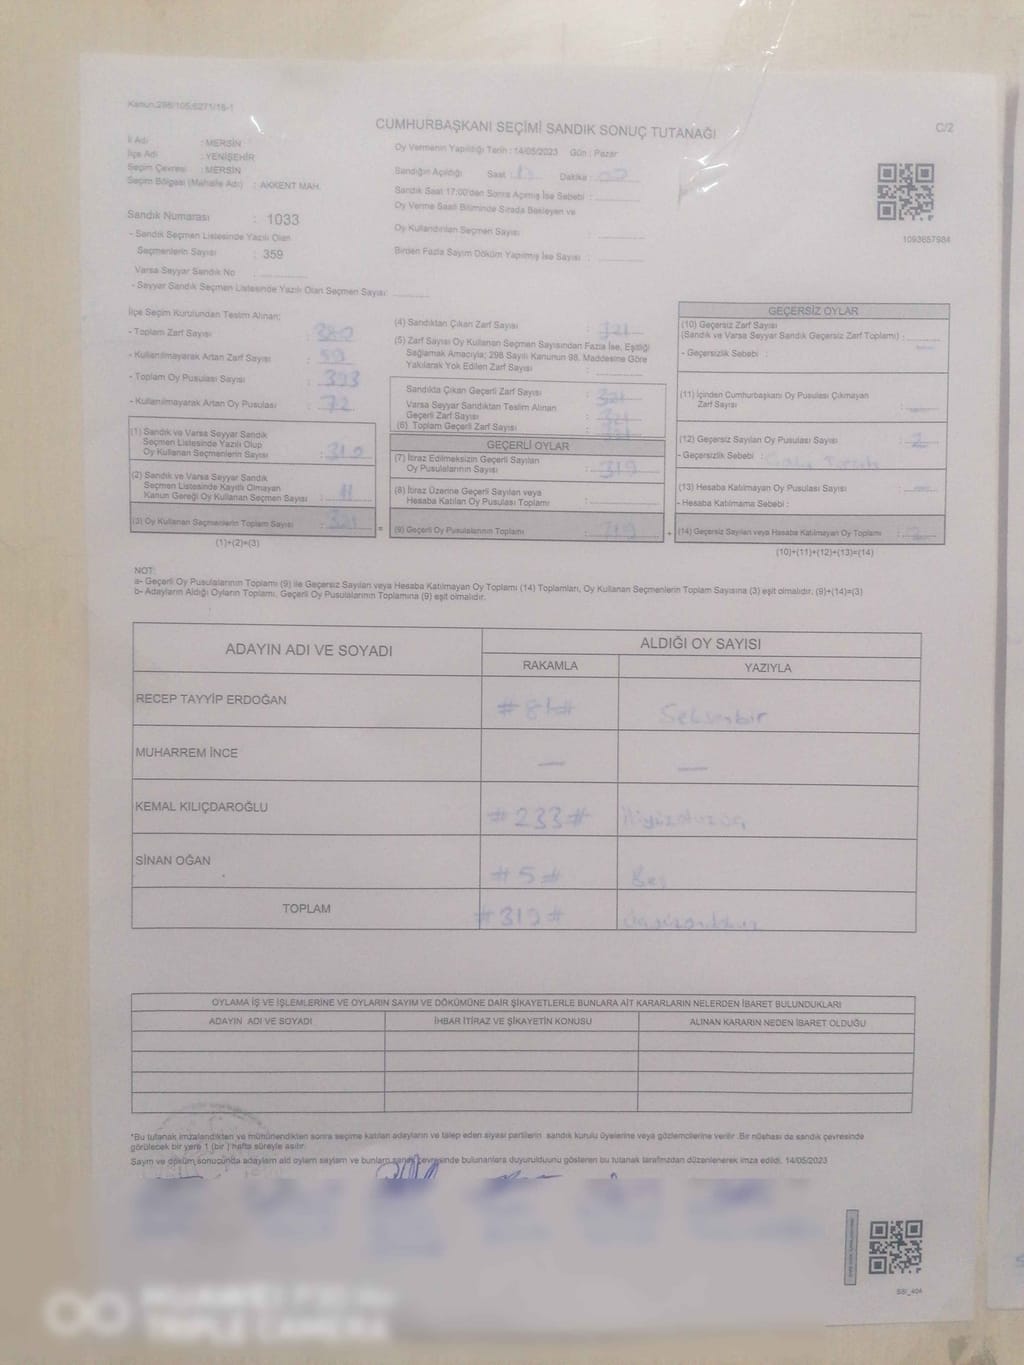 Kanun:298/105,6271/16-1
CUMHURBAŞKANI SEÇİMİ SANDIK SONUÇ TUTANAĞI
C/2
İl Adı : MERSİN
İlçe Adı : YENİŞEHİR
Seçim Çevresi : MERSİN
Seçim Bölgesi (Mahalle Adı) : AKKENT MAH.
Sandık Numarası : 1033
- Sandık Seçmen Listesinde Yazılı Olan
Seçmenlerin Sayısı : 359
Varsa Seyyar Sandık No :
- Seyyar Sandık Seçmen Listesinde Yazılı Olan Seçmen Sayısı:
Oy Vermenin Yapıldığı Tarih : 14/05/2023 Gün : Pazar
Sandığın Açıldığı Saat : Dakika :
Sandık Saat 17:00'den Sonra Açılmış İse Sebebi :
Oy Verme Saati Bitiminde Sırada Bekleyen ve
Oy Kullandırılan Seçmen Sayısı :
Birden Fazla Sayım Döküm Yapılmış İse Sayısı :
1093657984
İlçe Seçim Kurulundan Teslim Alınan:
- Toplam Zarf Sayısı : 380
- Kullanılmayarak Artan Zarf Sayısı : 59
- Toplam Oy Pusulası Sayısı : 393
- Kullanılmayarak Artan Oy Pusulası : 72
(1) Sandık ve Varsa Seyyar Sandık
Seçmen Listesinde Yazılı Olup
Oy Kullanan Seçmenlerin Sayısı : 310
(2) Sandık ve Varsa Seyyar Sandık
Seçmen Listesinde Kayıtlı Olmayan
Kanun Gereği Oy Kullanan Seçmen Sayısı : 11
(3) Oy Kullanan Seçmenlerin Toplam Sayısı : 321
(1)+(2)=(3)
=
(4) Sandıktan Çıkan Zarf Sayısı : 321
(5) Zarf Sayısı Oy Kullanan Seçmen Sayısından Fazla İse, Eşitliği
Sağlamak Amacıyla; 298 Sayılı Kanunun 98. Maddesine Göre
Yakılarak Yok Edilen Zarf Sayısı :
Sandıkta Çıkan Geçerli Zarf Sayısı : 321
Varsa Seyyar Sandıktan Teslim Alınan
Geçerli Zarf Sayısı :
(6) Toplam Geçerli Zarf Sayısı : 321
GEÇERLİ OYLAR
(7) İtiraz Edilmeksizin Geçerli Sayılan
Oy Pusulalarının Sayısı : 319
(8) İtiraz Üzerine Geçerli Sayılan veya
Hesaba Katılan Oy Pusulası Toplamı :
(9) Geçerli Oy Pusulalarının Toplamı : 319
+
GEÇERSİZ OYLAR
(10) Geçersiz Zarf Sayısı
(Sandık ve Varsa Seyyar Sandık Geçersiz Zarf Toplamı) :
- Geçersizlik Sebebi :
(11) İçinden Cumhurbaşkanı Oy Pusulası Çıkmayan
Zarf Sayısı :
(12) Geçersiz Sayılan Oy Pusulası Sayısı : 2
- Geçersizlik Sebebi :
(13) Hesaba Katılmayan Oy Pusulası Sayısı :
- Hesaba Katılmama Sebebi :
(14) Geçersiz Sayılan veya Hesaba Katılmayan Oy Toplamı : 2
(10)+(11)+(12)+(13)=(14)
NOT:
a- Geçerli Oy Pusulalarının Toplamı (9) ile Geçersiz Sayılan veya Hesaba Katılmayan Oy Toplamı (14) Toplamları, Oy Kullanan Seçmenlerin Toplam Sayısına (3) eşit olmalıdır. (9)+(14)=(3)
b- Adayların Aldığı Oyların Toplamı, Geçerli Oy Pusulalarının Toplamına (9) eşit olmalıdır.
ADAYIN ADI VE SOYADI
ALDIĞI OY SAYISI
RAKAMLA YAZIYLA
RECEP TAYYİP ERDOĞAN #81# Seksenbir
MUHARREM İNCE — —
KEMAL KILIÇDAROĞLU #233# ikiyüzotuzüç
SİNAN OĞAN #5# Beş
TOPLAM #319# üçyüzondokuz
OYLAMA İŞ VE İŞLEMLERİNE VE OYLARIN SAYIM VE DÖKÜMÜNE DAİR ŞİKAYETLERLE BUNLARA AİT KARARLARIN NELERDEN İBARET BULUNDUKLARI
ADAYIN ADI VE SOYADI İHBAR İTİRAZ VE ŞİKAYETİN KONUSU ALINAN KARARIN NEDEN İBARET OLDUĞU
*Bu tutanak imzalandıktan ve mühürlendikten sonra seçime katılan adayların ve talep eden siyasi partilerin sandık kurulu üyelerine veya gözlemcilerine verilir. Bir nüshası da sandık çevresinde
görülecek bir yere 1 (bir) hafta süreyle asılır.
Sayım ve döküm sonucunda adayların aldığı oyların sayıları ve bunların sandık çevresinde bulunanlara duyurulduğunu gösteren bu tutanak tarafımızdan düzenlenerek imza edildi. 14/05/2023
SSI_404
HUAWEI P30 lite
TRIPLE CAMERA